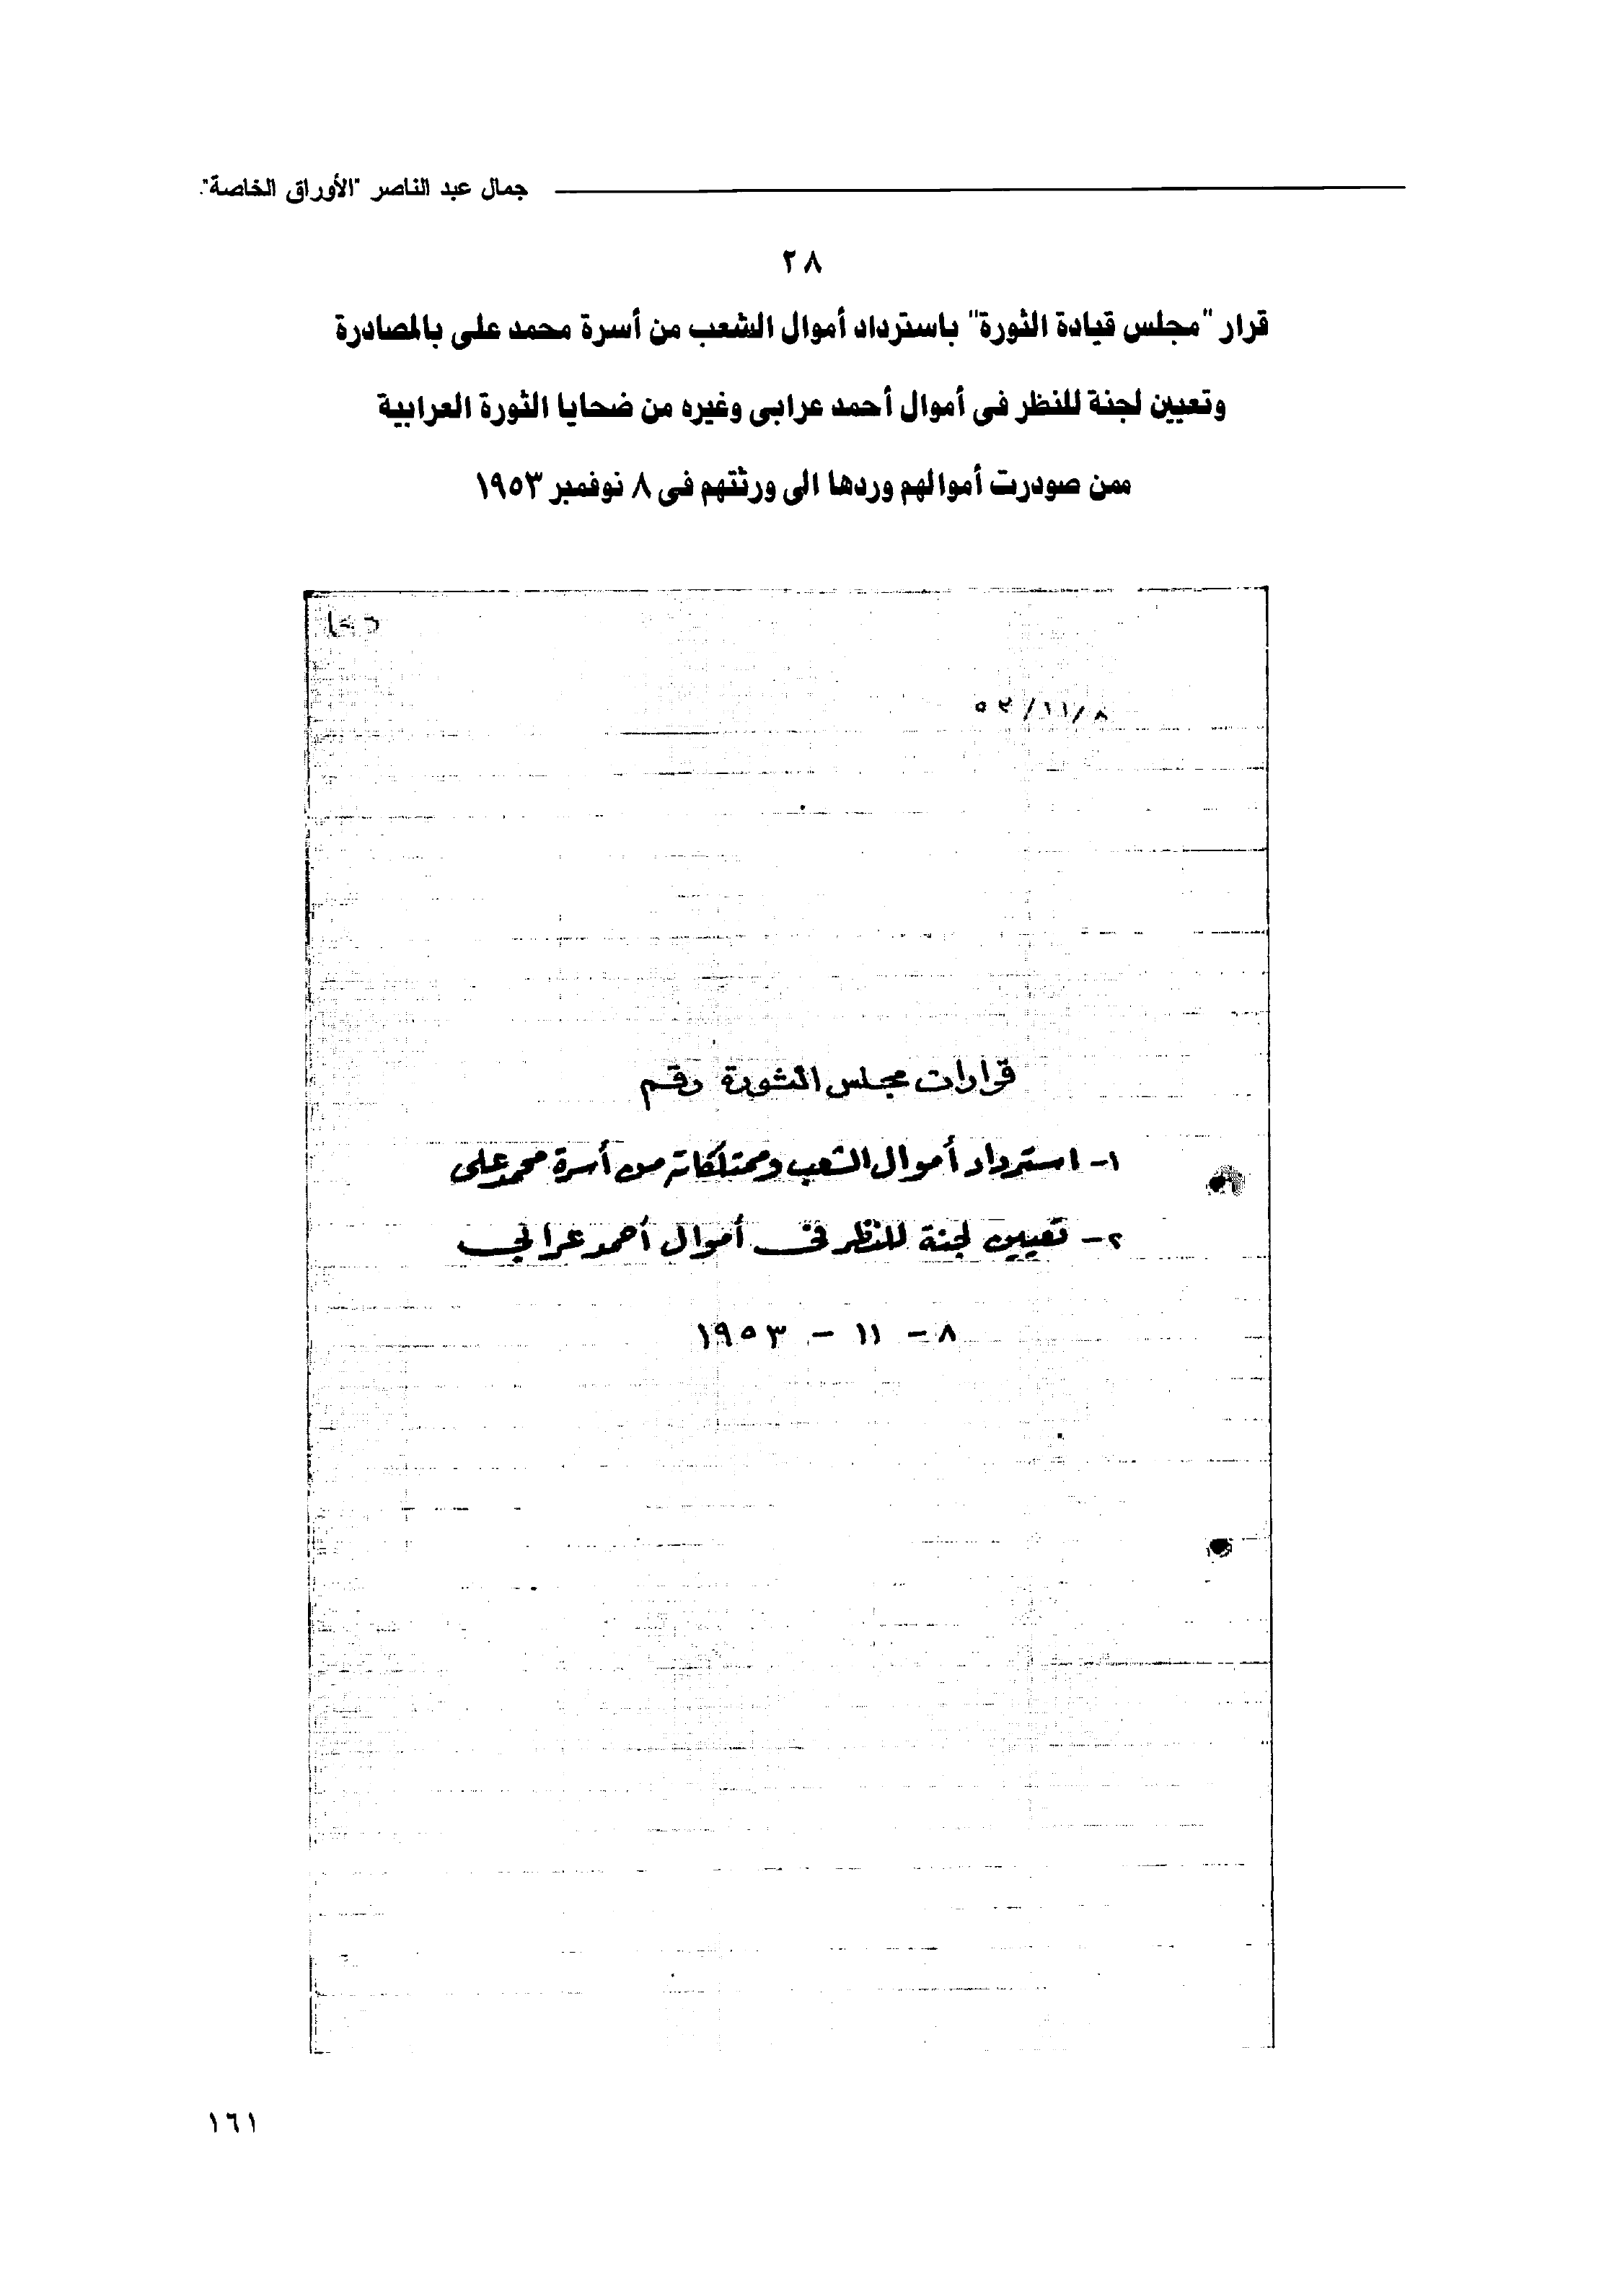 جمال عبد الناصر "الأوراق الخاصة".
٢٨
قرار "مجلس قيادة الثورة" باسترداد أموال الشعب من أسرة محمد على بالمصادرة
وتعيين لجنة للنظر فى أموال أحمد عرابى وغيره من ضحايا الثورة العرابية
ممن صودرت أموالهم وردها الى ورثتهم فى ٨ نوفمبر ١٩٥٣
٨/١١/٥٣
قرارات مجلس الثورة رقم
١- استرداد أموال الشعب وممتلكاته من أسرة محمد على
٢- تعيين لجنة للنظر فى أموال أحمد عرابى
٨ - ١١ - ١٩٥٣
١٦١